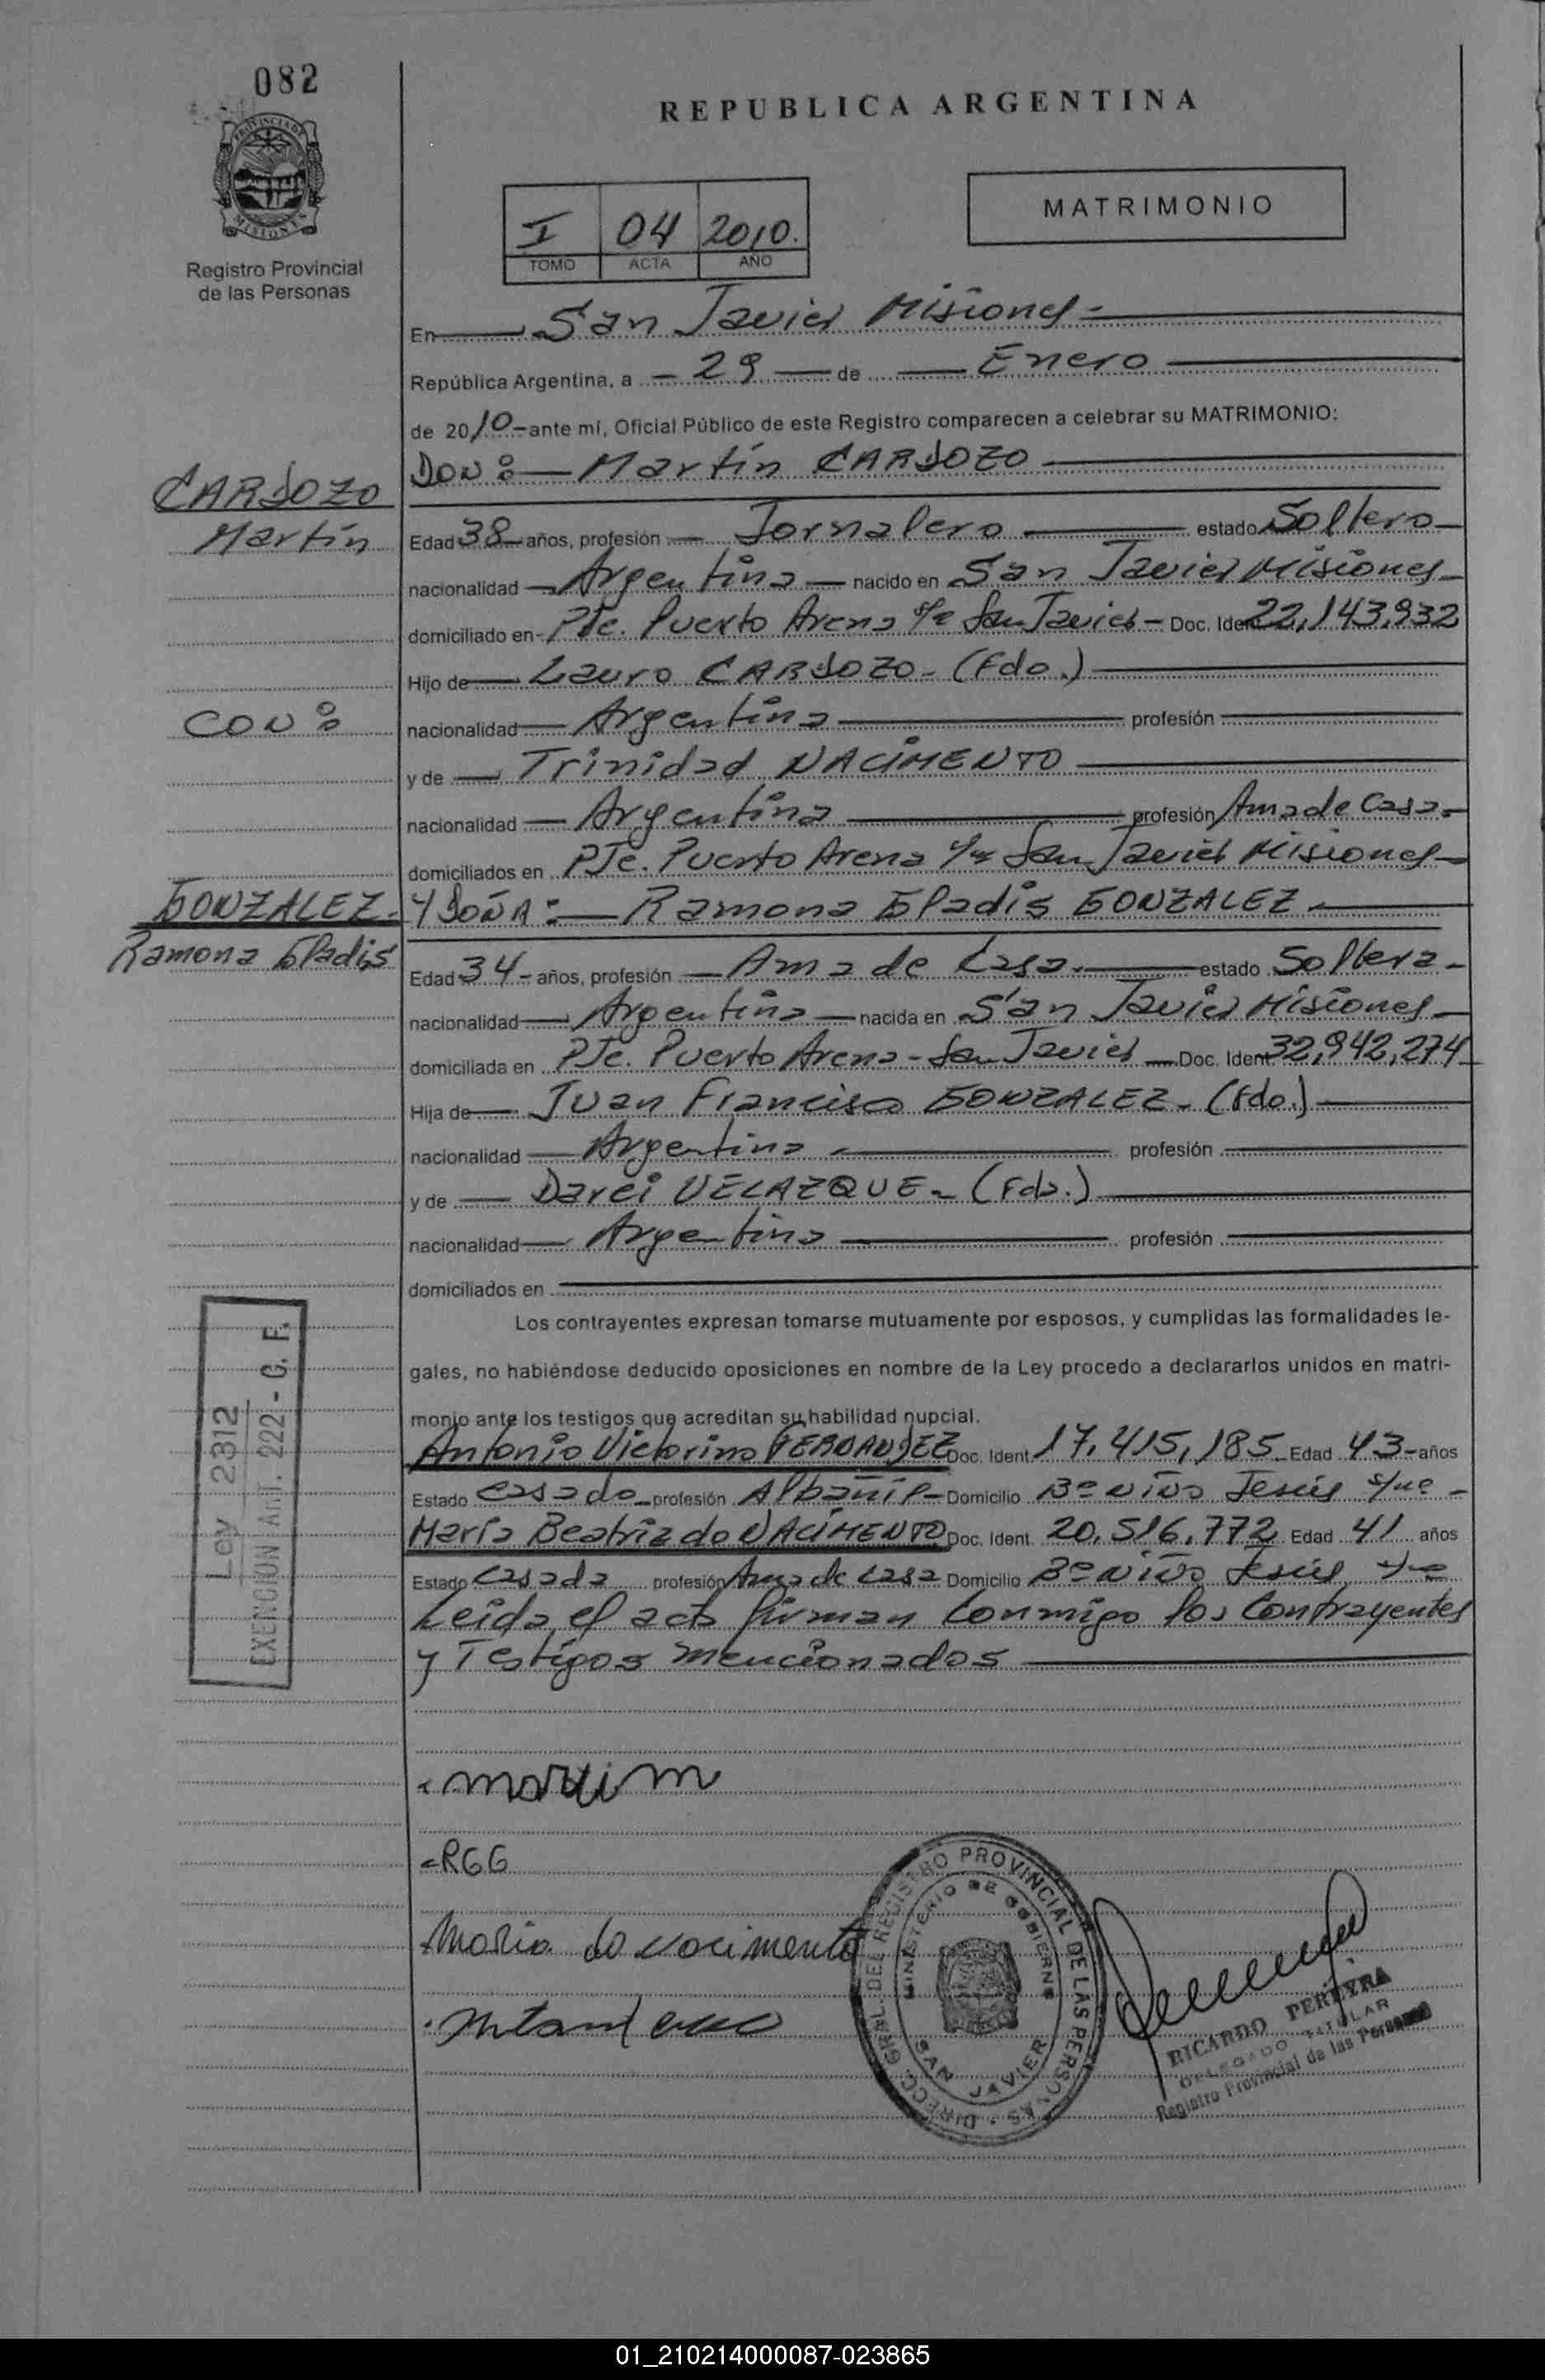 082
REPUBLICA ARGENTINA
PROVINCIA DE MISIONES
Registro Provincial
de las Personas
I 04 2010.
TOMO ACTA AÑO
MATRIMONIO
En San Javier Misiones -
República Argentina, a - 29 - de Enero
de 2010 - ante mí, Oficial Público de este Registro comparecen a celebrar su MATRIMONIO:
DON: Martín CARDOZO
CARDOZO
Martín
Edad 38 años, profesión Jornalero estado Soltero
nacionalidad Argentina nacido en San Javier Misiones
domiciliado en Pje. Puerto Arena San Javier - Doc. Ident 22,143,932
Hijo de Lauro CARDOZO - (Fdo.)
CON:
nacionalidad Argentina profesión
y de Trinidad NACIMENTO
nacionalidad Argentina profesión Ama de Casa.
domiciliados en PJe. Puerto Arena San Javier Misiones
GONZALEZ - Y DOÑA: Ramona Gladis GONZALEZ
Ramona Gladis
Edad 34 - años, profesión Ama de Casa. estado Soltera -
nacionalidad Argentina nacida en San Javier Misiones
domiciliada en PJe. Puerto Arena - San Javier Doc. Ident. 32,942,274
Hija de Juan Francisco GONZALEZ - (Fdo.)
nacionalidad Argentina profesión
y de Darci VELAZQUE - (Fda.)
nacionalidad Argentina profesión
domiciliados en
Los contrayentes expresan tomarse mutuamente por esposos, y cumplidas las formalidades le-
gales, no habiéndose deducido oposiciones en nombre de la Ley procedo a declararlos unidos en matri-
monio ante los testigos que acreditan su habilidad nupcial.
Antonio Victorino FERNANDEZ Doc. Ident. 17,415,185 Edad 43 - años
Estado Casado profesión Albañil - Domicilio Bº Niño Jesús
María Beatriz do NACIMENTO Doc. Ident. 20,516,772 Edad 41 años
Estado Casada profesión Ama de Casa Domicilio Bº Niño Jesús
Leida el acta firman conmigo los Contrayentes
y Testigos mencionados
Ley 2312
EXENCION Art. 222 - G. F.
RGG
Maria do nacimento
DIRECC. GRAL. DEL REGISTRO PROVINCIAL DE LAS PERSONAS
MINISTERIO DE GOBIERNO
SAN JAVIER
RICARDO PEREYRA
DELEGADO TITULAR
Registro Provincial de las Personas
01_210214000087-023865